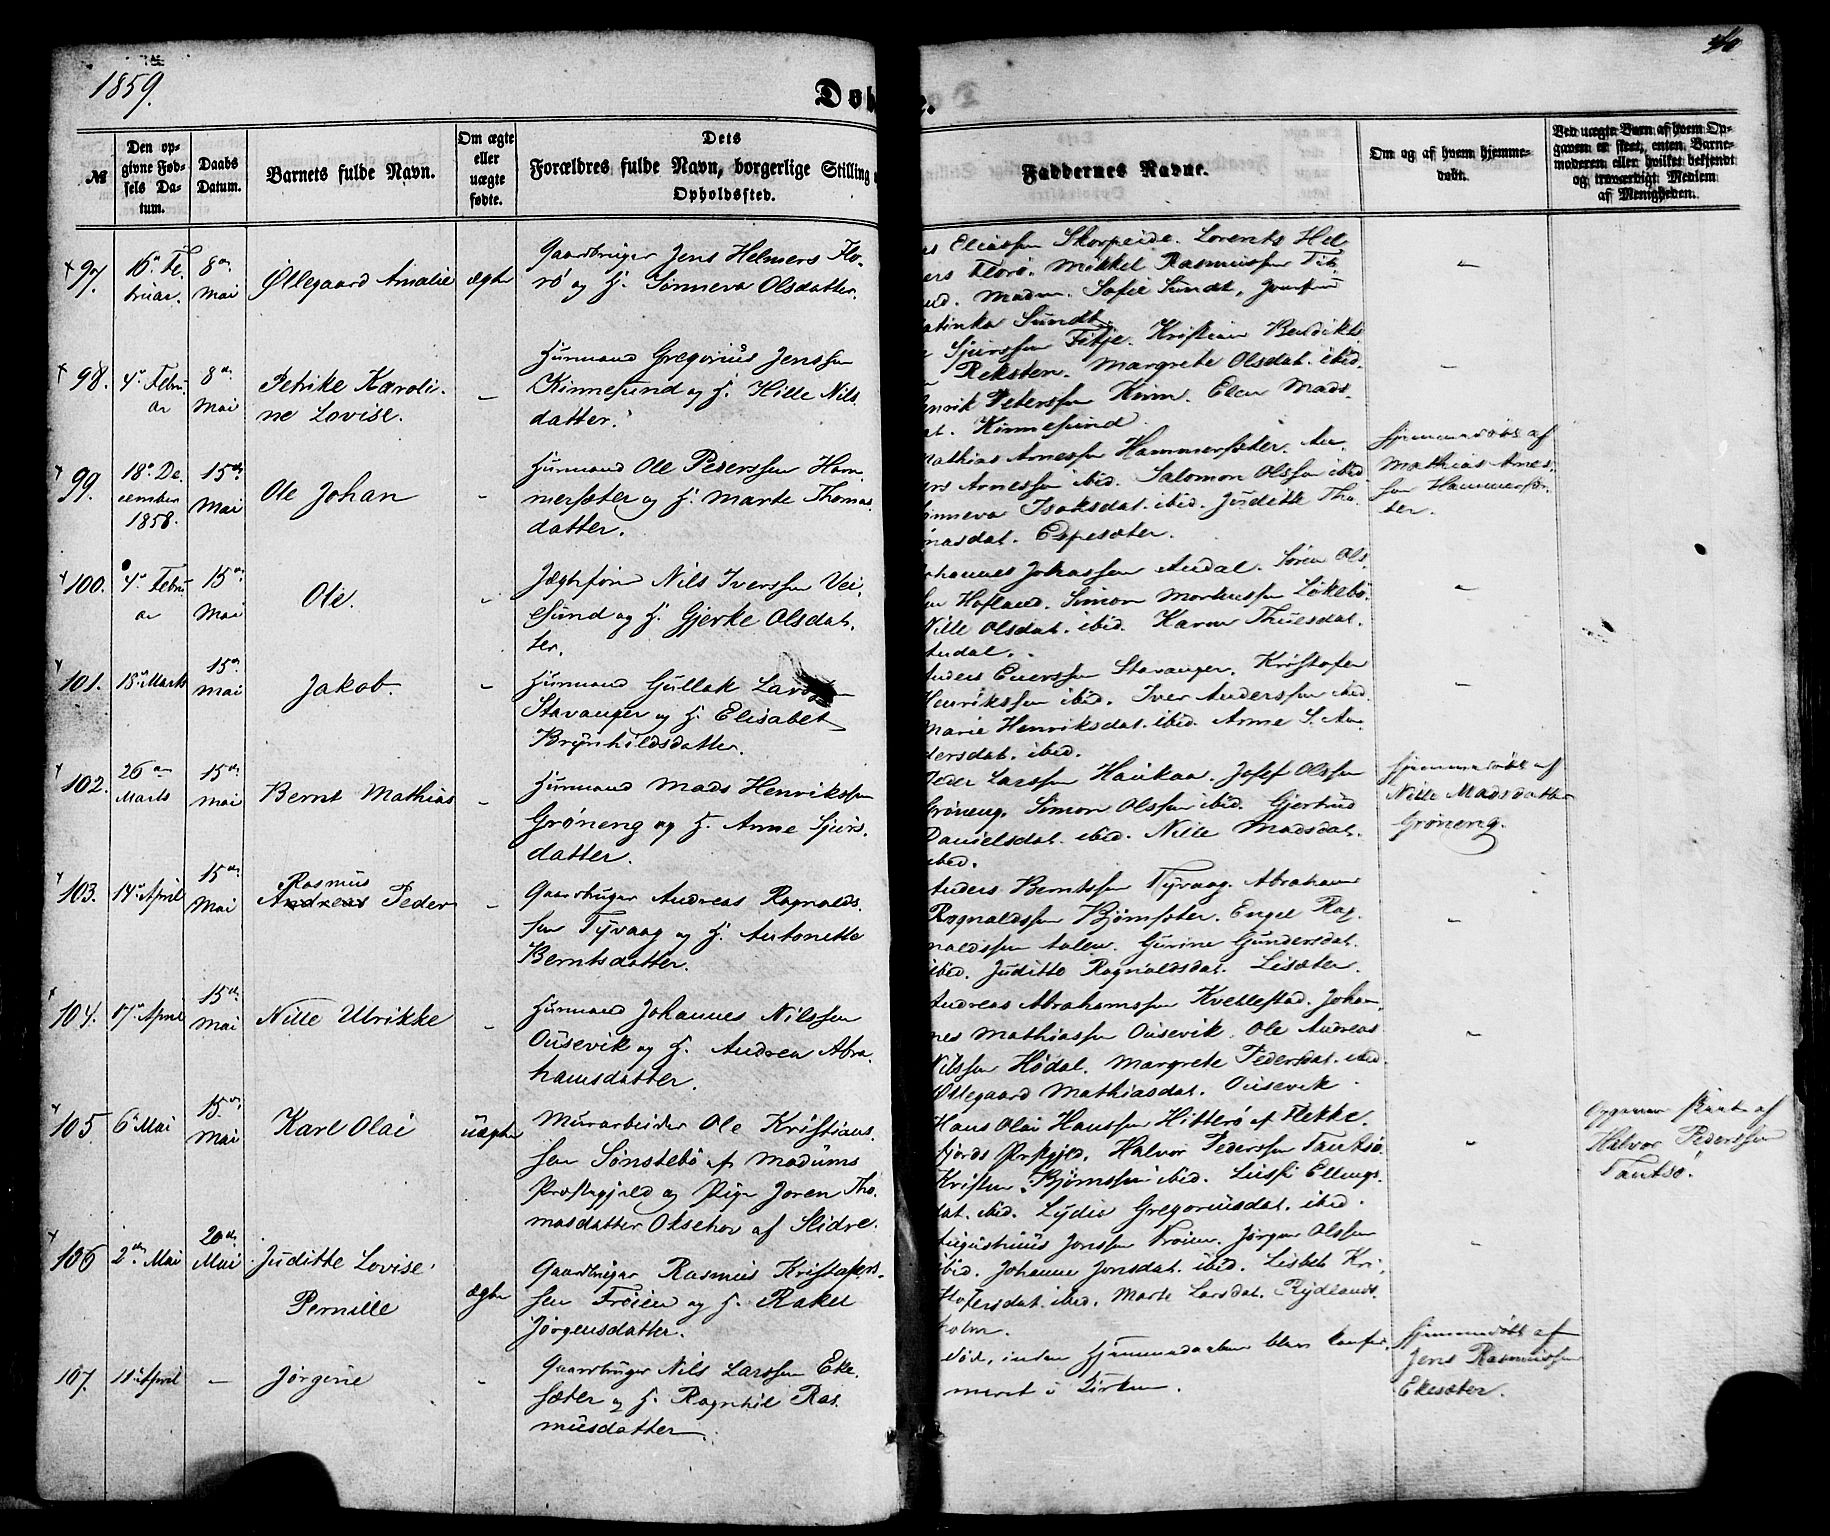 1859.
Døb
e.
№
Den opgivne Fødsels Datum.
Daabs Datum.
Barnets fulde Navn.
Om ægte eller uægte fødte.
Dets Forældres fulde Navn, borgerlige Stilling
Opholdssted.
Faddernes Navne.
Om og af hvem hjemmedøbt.
Ved uægte Barn af hvem Opgaven er skeet, enten Barnemoderen eller hvilket bekjendt og troværdigt Medlem af Menigheden.
97.
16de Februar.
8de Mai
Øllegaard Amalie
ægte
Gaardbruger Jens Helmers Flo-
rø og H. Sønneva Olsdatter.
as Eliassen Skorpeide. Lorents Hel
ers Florø. Mikkel Rasmussen
Madm. Sofie Sundt, Jomfru
Sundt.
-
98.
4de Februar
8de Mai
Petrike Karoli-
ne Lovise.
-
Huusmand Gregorius Jenssen
Kinnesund og H. Hille Nils
datter.
Sjurssen Fitje. Kristian Bendikts
Reksten. Margrete Olsdat. ibid.
enrik Peterssen Kinn. Elen Mads-
at. Kinnesund.
-
99.
18de December 1858.
15de Mai
Ole Johan
-
Huusmand Ole Pederssen Ham-
mersæter og H. Marte Thomas
datter.
Mathias Arnessen Hammersæter. An-
ers Arnessen ibid. Salomon Olssen ibid
ønneva Isaksdat. ibid. Juditte Tho-
masdat. Espesæter.
Hjemmedøbt af
Mathias Arnes-
sen Hammersæ-
ter.
100.
4de Februar
15de Mai
Ole.
-
Jægtefører Nils Iverssen Vei-
esund og H. Gjerke Olsdat-
ter.
ohannes Johassen Andal. Søren Ols-
sen Hofland. Simon Markussen Løkebø.
Nille Olsdat. ibid. Karen Thuesdat.
Andal.
-
101.
18de Marts
15de Mai
Jakob.
-
Huusmand Gullak Larssen
Stavanger og H. Elisabet
Brynhildsdatter.
Anders Enerssen Stavanger. Kristofer
Henrikssen ibid. Iver Anderssen ibid.
Marie Henriksdat. ibid. Anne S. An-
dersdat. ibid.
-
102.
26de Marts
15de Mai
Bernt Mathias
-
Huusmand Mads Henrikssen
Grøneng og H. Anne Sjurs-
datter.
Peder Larssen Haukaa. Josef Olssen
Grøneng. Simon Olssen ibid. Gjertrud
Danielsdat. ibid. Nille Madsdat.
ibid.
Hjemmedøbt af
Nille Madsdatter
Grøneng.
103.
14de April
15de Mai
Rasmus
Andreas Peder
-
Gaardbruger Andreas Ragnalds-
sen Tyvaag og H. Antonette
Berntsdatter.
Anders Berntssen Tyvaag. Abraham
Ragnaldssen Bjørnsæter. Engel Rag-
naldssen Aalen. Gurine Gundersdat.
ibid. Juditte Ragnaldsdat. Lisæter.
-
104.
17de April
15de Mai
Nille Ulrikke
-
Huusmand Johannes Nilssen
Ousevik og H. Andrea Abra-
hamsdatter.
Andreas Abrahamssen Kvellestad. Johan-
nes Mathiassen Ousevik. Ole Andreas
Nilssen Hødal. Margrete Pedersdat. ibid.
Øllegaard Mathiasdat. Ousevik.
-
105.
6de Mai
15de Mai
Karl Olai
uægte
Murarbeider Ole Kristians-
sen Sønstebø af Modums
Præstegjeld og Pige Joren Tho-
masdatter Oksehov af Slidre.
Hans Olai Hanssen Hitterø af Flekke-
fjords Præstgjeld. Halvor Pederssen Tautsø
Kristen Bjørnssen ibid. Ellings-
dat. ibid. Lydie Gregoriusdat. ibid
-
Opgaven skeet af
Halvor Pederssen
Tautsø.
106
2den Mai
20de Mai
Juditte Lovise
Pernille
ægte
Gaardbruger Rasmus Kristofers-
sen Frøien og H. Rakel
Jørgensdatter.
Augustinus Jonssen Frøien. Jørgen Olssen
ibid. Johanne Jonsdat. ibid. Lisbet Kri-
stofersdat. ibid. Marte Larsdat. Rydlands-
holm.
-
107.
11de April
-
Jørgine
-
Gaardbruger Nils Larssen Eke-
sæter og H. Ragnhil Ras-
musdatter.
død, inden Hjemmedaaben blev konfir
meret i Kirken.
Hjemmedøbt af
Jens Rasmussen
Ekesæter.